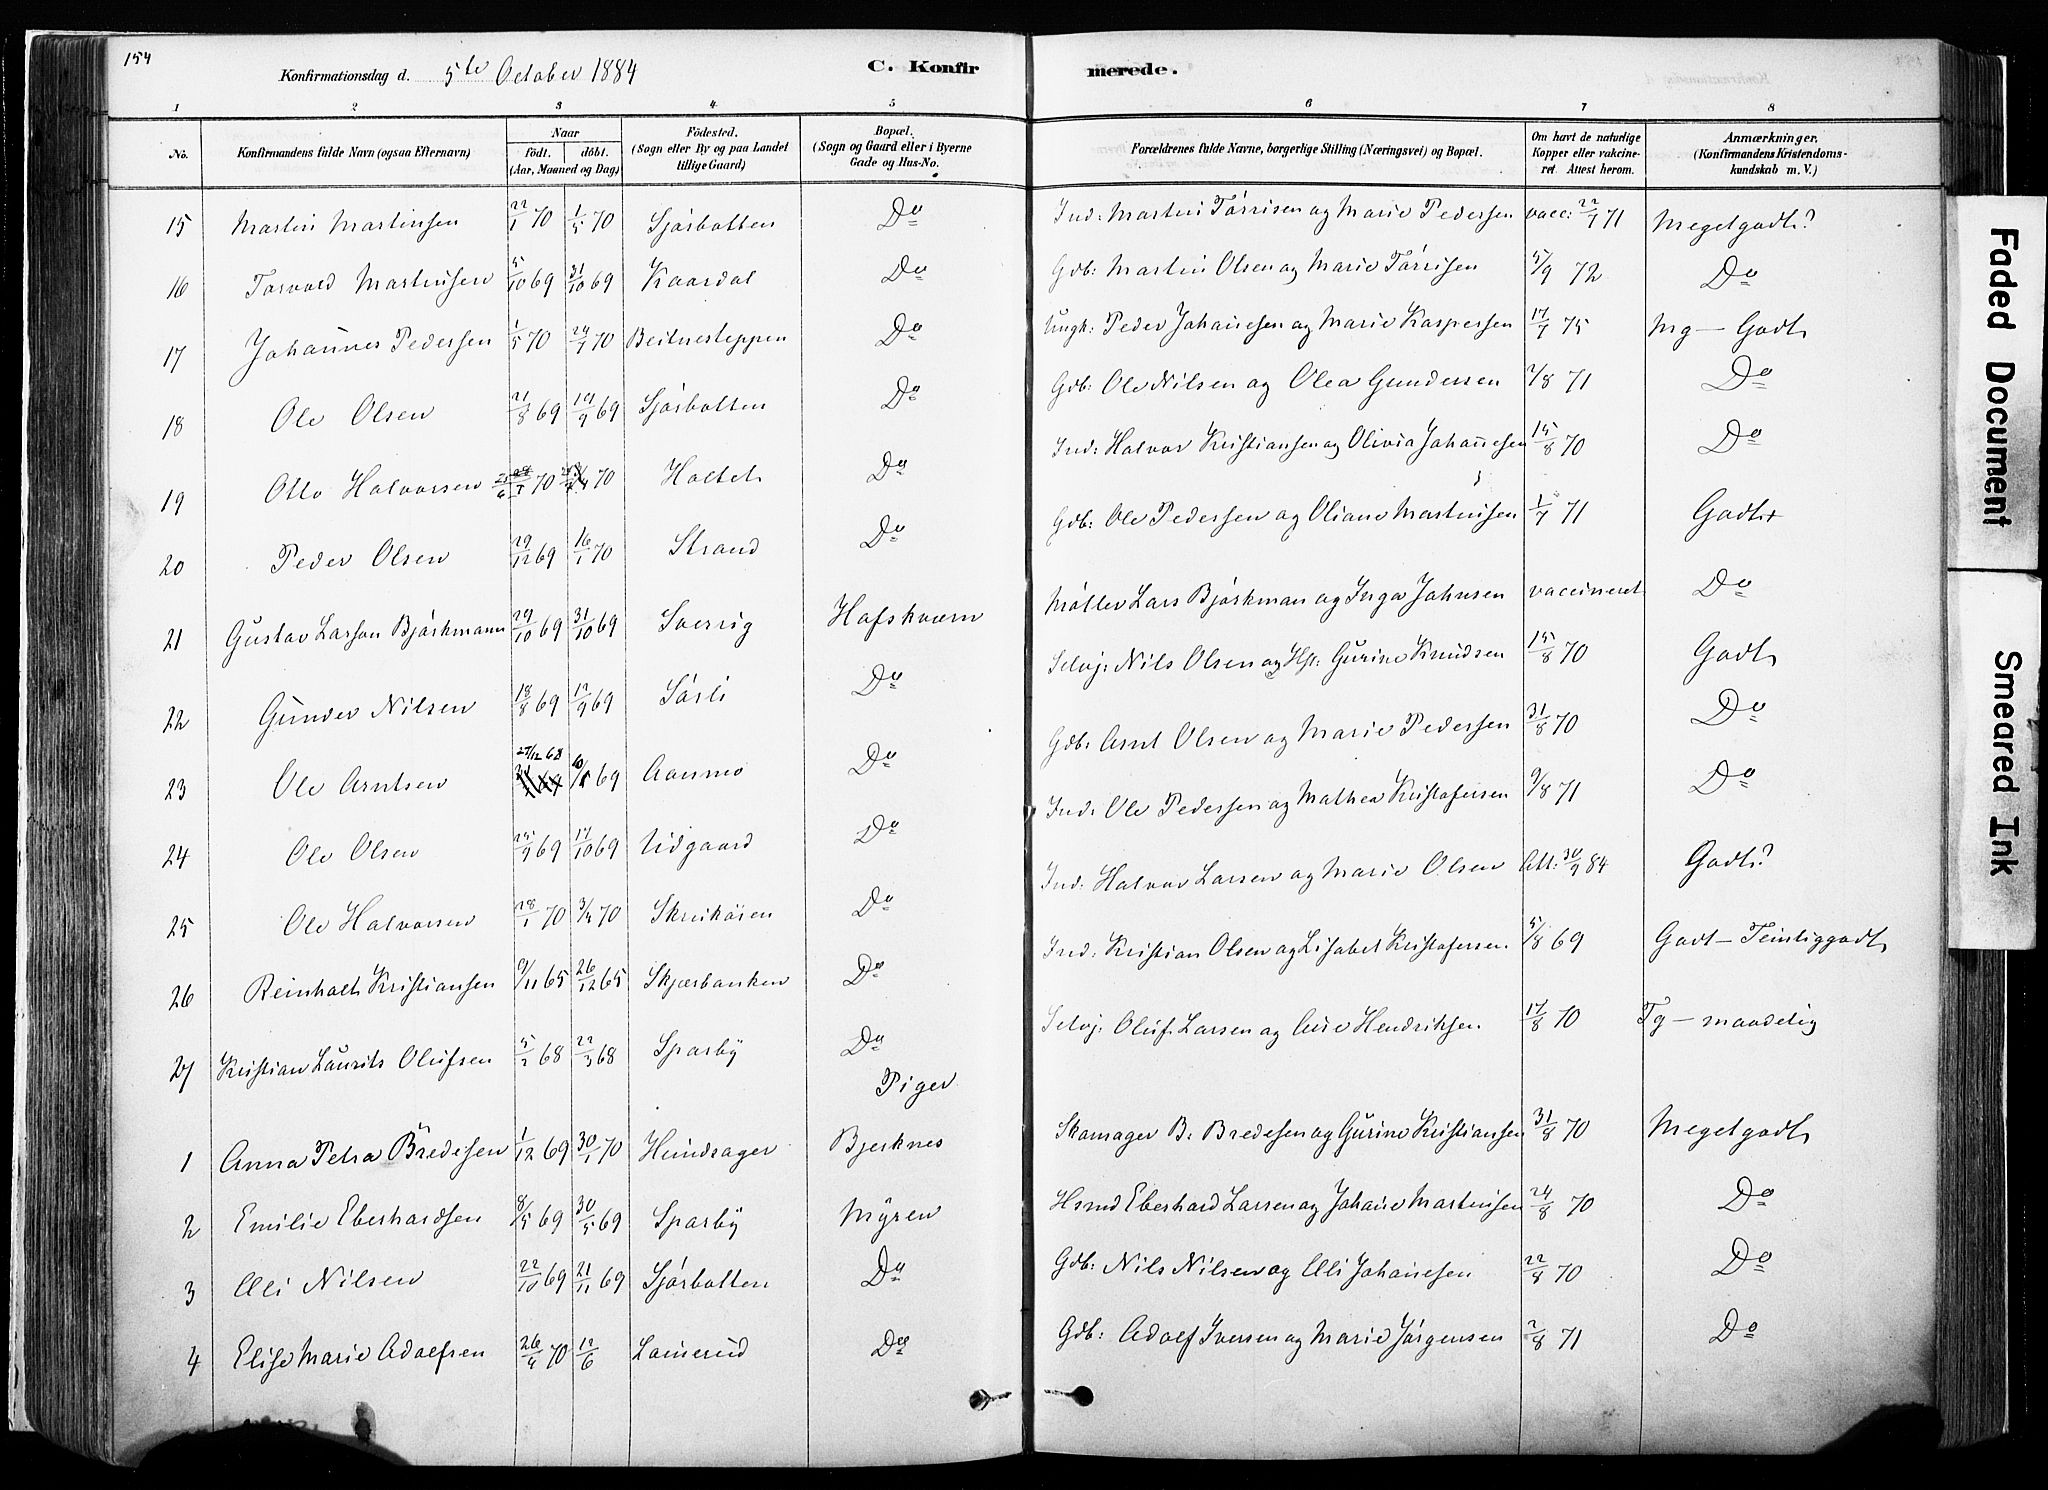 154
Konfirmationsdag d. 5te October 1884 C. Konfirmerede.
1 2 3 4 5 6 7 8
No. Konfirmandens fulde Navn (ogsaa Efternavn) Naar födt. döbt. (Aar, Maaned og Dag) Födested. (Sogn eller By og paa Landet tillige Gaard) Bopæl. (Sogn og Gaard eller i Byerne Gade og Hus-No. Forældrenes fulde Navne, borgerlige Stilling (Næringsvei) og Bopæl. Om havt de naturlige Kopper eller vakcineret Attest herom. Anmærkninger, (Konfirmandens Kristendomskundskab m. V.)
15 Martin Martinsen 22/1 70 1/5 70 Sjørbotten Do Ind: Martin Tørrisen og Marie Pedersen vacc: 22/7 71 Megetgodt?
16 Torvald Martinsen 5/10 69 31/10 69 Kaardal Do Gdb: Martin Olsen og Marie Tørrisen 5/9 72 Do
17 Johannes Pedersen 1/5 70 24/7 70 Beitnesteppen Do Ungk: Peder Johannesen og Marie Kaspersen 17/7 75 Mg — Godt
18 Ole Olsen 21/8 69 19/9 69 Sjørbotten Do Gdb: Ole Nilsen og Olea Gundersen 2/8 71 Do
19 Otto Halvorsen 70 70 Holtet Do Ind: Halvor Kristiansen og Olivia Johannesen 15/8 70 Do
20 Peder Olsen 29/12 69 16/1 70 Strand Do Gdb: Ole Pedersen og Oliane Martinsen 1/7 71 Godt+
21 Gustav Larson Bjørkmann 29/10 69 31/10 69 Sverrig Hafskvern Møller Lars Bjørkman og Inga Johnsen vaccineret Do
22 Gunder Nilsen 18/8 69 12/9 69 Sørli Do Selvj: Nils Olsen og Hst: Gurine Knudsen 15/8 70 Godt
23 Ole Arntsen 27/12 68 69 Aanmo Do Gdb: Arnt Olsen og Marie Pedersen 31/8 70 Do
24 Ole Olsen 25/9 69 17/10 69 Udgaard Do Ind: Ole Pedersen og Mathea Kristofersen 9/8 71 Do
25 Ole Halvorsen 28/1 70 3/4 70 Skreikøien Do Ind: Halvor Larsen og Marie Olsen Att: 30/9 84 Godt?
26 Reinholt Kristiansen 9/11 65 26/12 65 Skjærbanken Do Ind: Kristian Olsen og Lisabet Kristofersen 5/8 69 Godt — Temliggodt
27 Kristian Laurits Olufsen 5/2 68 22/3 68 Sparby Do Selvj: Oluf Larsen og Ane Hendriksen 17/8 70 Tg — maadelig
Piger
1 Anna Petra Bredesen 1/12 69 30/1 70 Hundsager Bjerknes Skomager B: Bredesen og Gurine Kristiansen 31/8 70 Megetgodt
2 Emilie Eberhardsen 8/5 69 30/5 69 Sparby Myren Hsmd Eberhard Larsen og Johane Martinsen 24/8 70 Do
3 Elli Nilsen 22/10 69 21/11 69 Sjørbotten Do Gdb: Nils Nilsen og Elli Johannesen 22/8 70 Do
4 Elise Marie Adolfsen 26/4 70 12/6 Lomerud Do Gdb: Adolf Iversen og Marie Jørgensen 2/8 71 Do
Faded Document
Smeared Ink